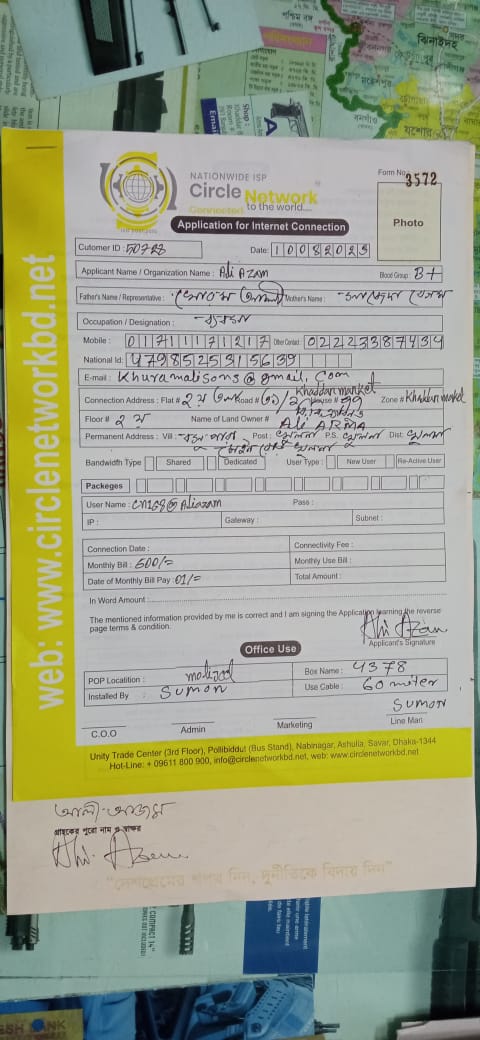 ঝিনাইদহ
যশোর
NATIONWIDE ISP
Circle Network
Connected to the world....
Form No. 3572
Photo
Application for Internet Connection
Cutomer ID : 50728
Date: 10082023
Applicant Name / Organization Name : Ali AZAM
Blood Group : B+
Father's Name / Representative :
Mother's Name :
Occupation / Designation :
Mobile : 01711171217 Other Contact : 02223387434
National Id: 4798525315639
E-mail : Khuramalisons@gmail.com
Connection Address : Flat # ২য় Road # House # Khaddan market Zone # Khaddan market
Floor # ২য় Name of Land Owner # Ali ARMA
Permanent Address : Vill : Post : খুলনা P.S. খুলনা Dist: খুলনা
Bandwidth Type Shared Dedicated User Type : New User Re-Active User
Packeges
User Name : CN168@Aliazam Pass :
IP : Gateway : Subnet :
Connection Date : Connectivity Fee :
Monthly Bill : 500/= Monthly Use Bill :
Date of Monthly Bill Pay : 01/= Total Amount :
In Word Amount :
The mentioned information provided by me is correct and I am signing the Application learning the reverse
page terms & condition.
Ali Azam
Applicant's Signature
Office Use
POP Localtition : Box Name : 4378
Installed By : SUMON Use Cable : 60 miter
SUMON
C.O.O Admin Marketing Line Man
Unity Trade Center (3rd Floor), Pollibiddut (Bus Stand), Nabinagar, Ashulia, Savar, Dhaka-1344
Hot-Line: + 09611 800 900, info@circlenetworkbd.net, web: www.circlenetworkbd.net
web: www.circlenetworkbd.net
আলী আজম
গ্রাহকের পুরো নাম ও স্বাক্ষর
Ali. Azam
"দেশপ্রেমের শপথ নিন, দুর্নীতিকে বিদায় দিন"
COMPACT 14"
BANK